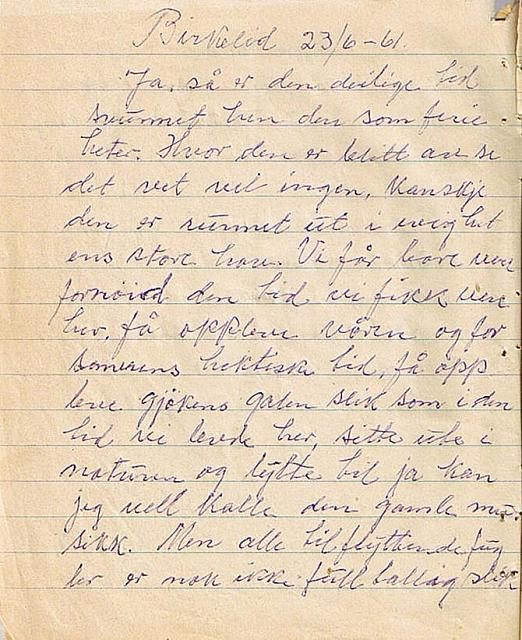 Birkelid 23/6-61.
Ja, så er den deilige tid
svunnet hen den som ferie
heter. Hvor den er blitt av se
det vet vel ingen, Kanskje
den er runnet ut i evighet
ens store hav. Vi får bare være
fornøid den tid vi fikk være
her, få oppleve våren og for
somerens hektiske tid, få opp
leve gjøkens galen slik som i den
tid vi levde her, sitte ute i
naturen og lytte til ja kan
jeg vell kalle den gamle mu-
sikk. Men alle tilflyttende fug
ler er nok ikke fulltallig slik